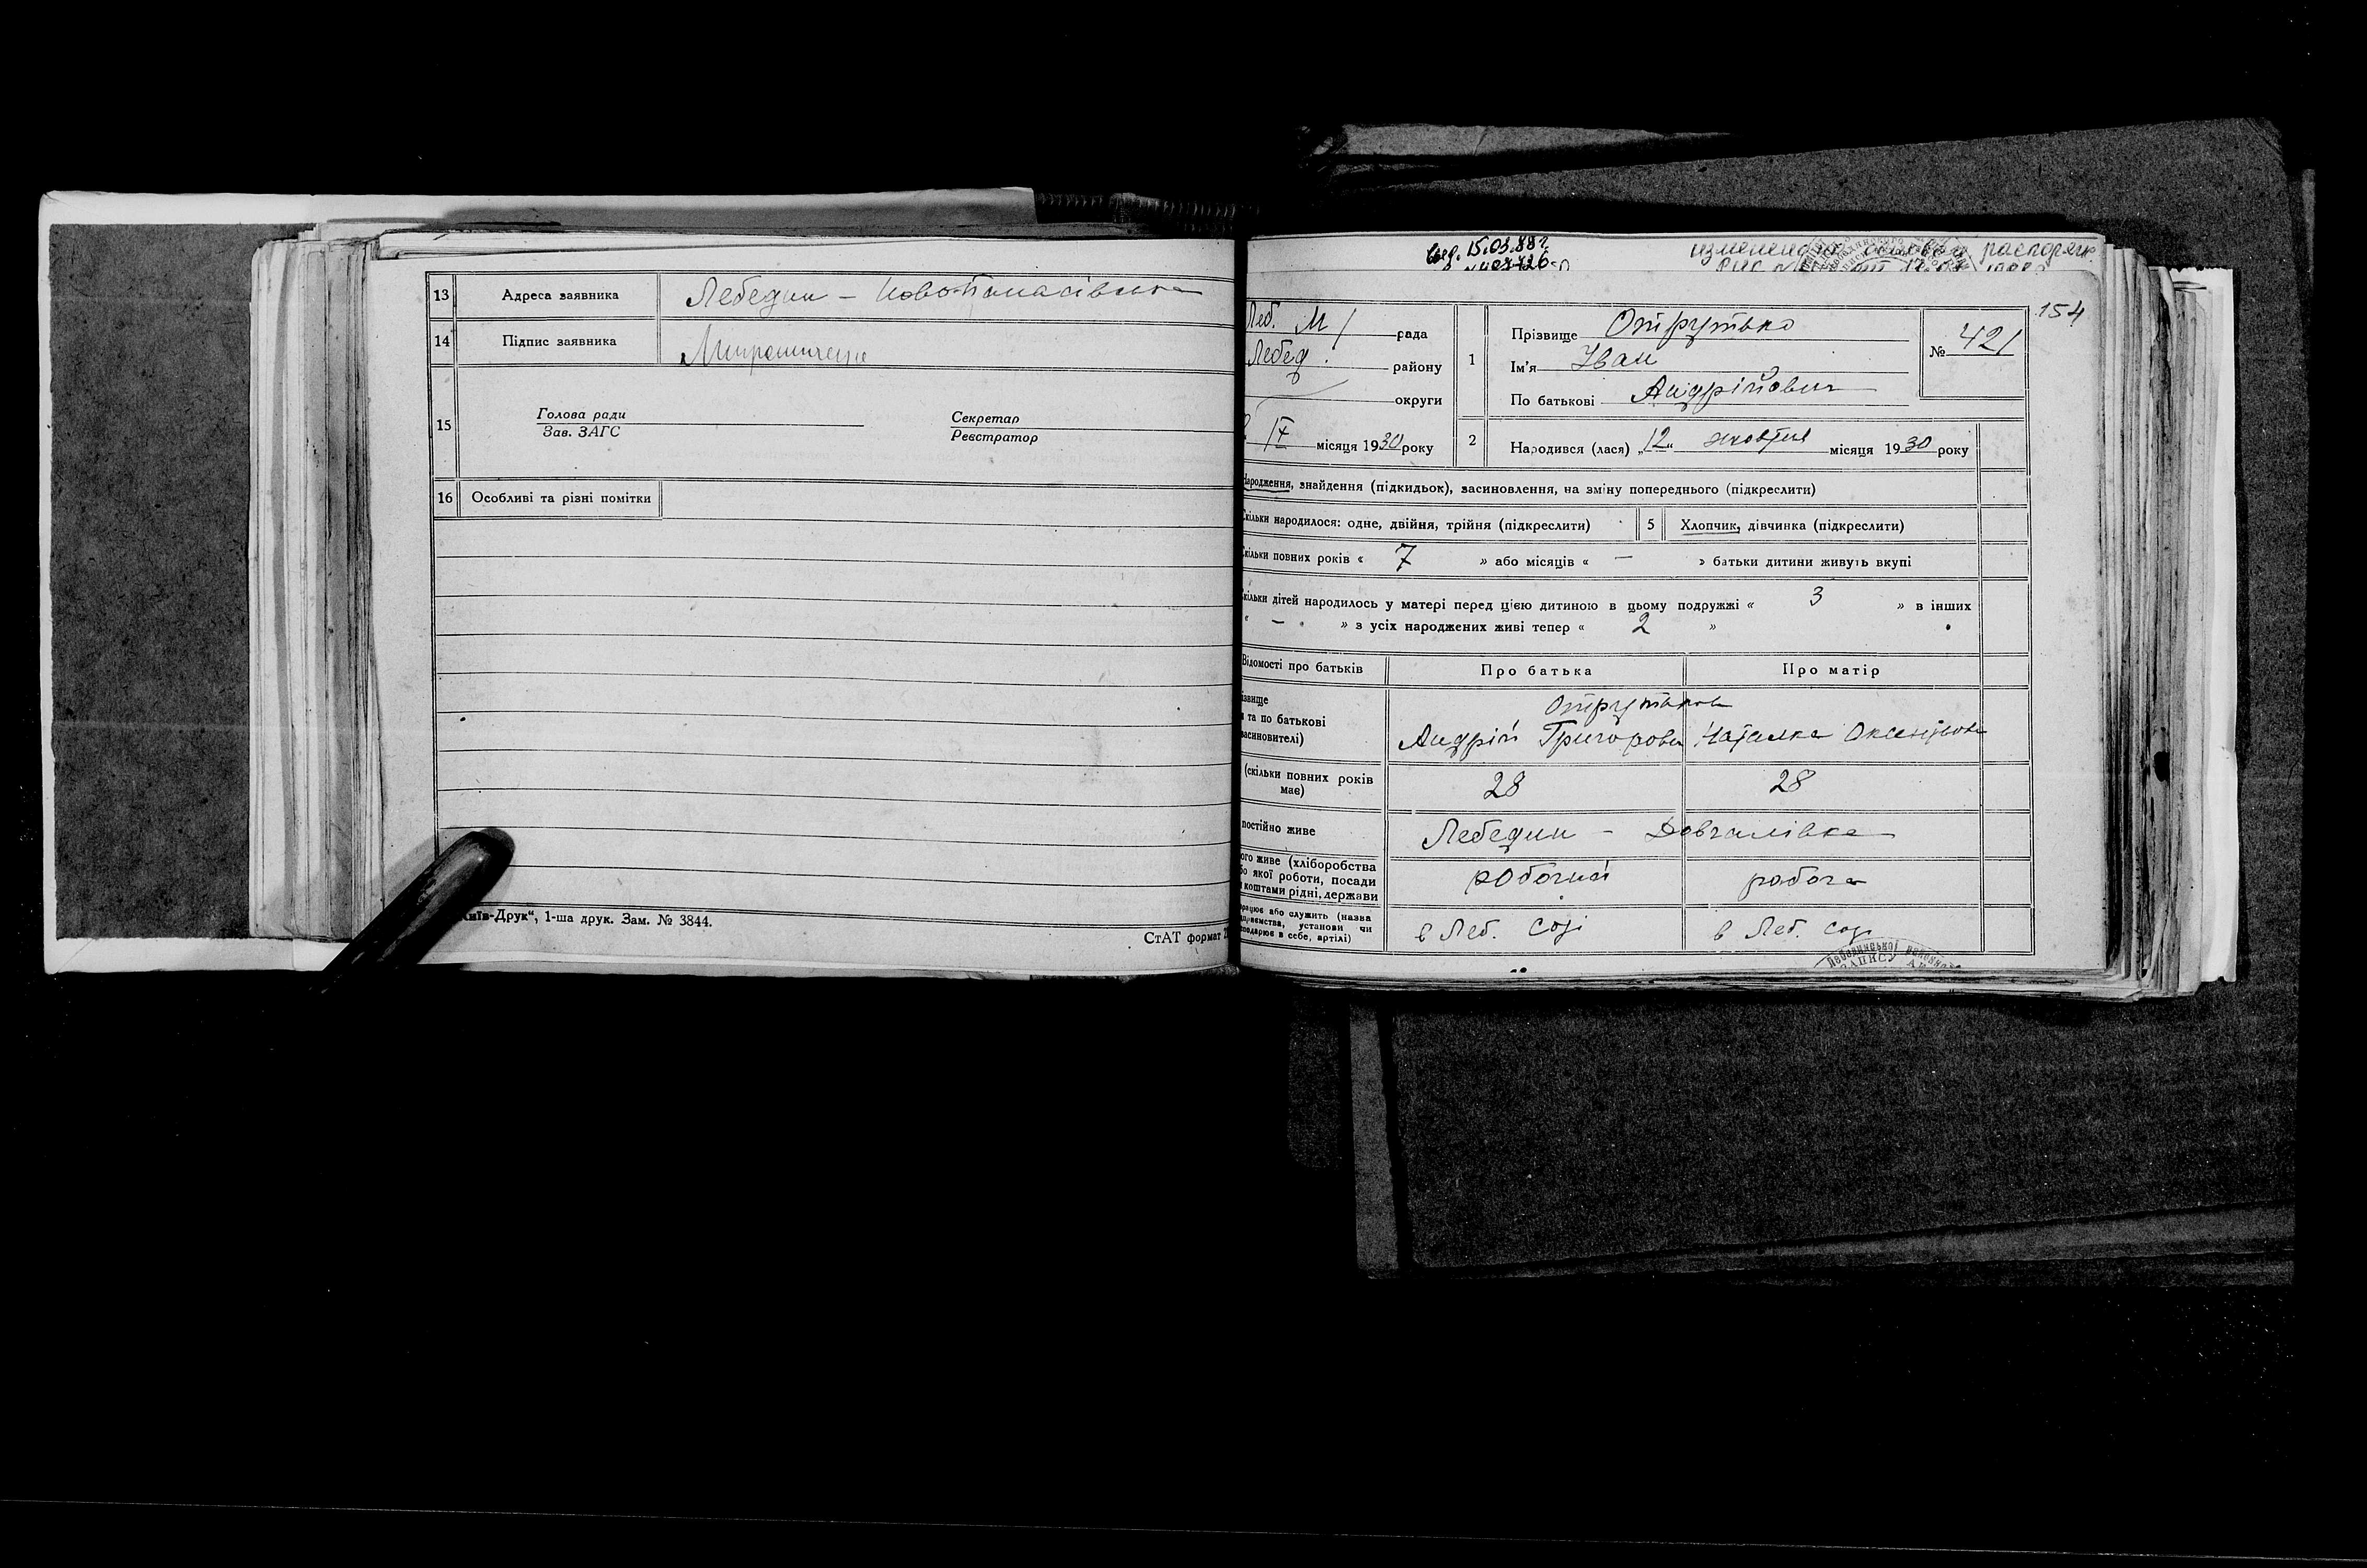 13 Адреса заявника Лебедин – Новопанасівська
14 Підпис заявника Мирошниченко
15
Голова ради
Зав. ЗАГС
Секретар
Реєстратор
16 Особливі та різні помітки
Київ-Друк", 1-ша друк. Зам. № 3844.
СтАТ формат
15.03.88 г.
изменена распоряж.
154
Леб. М/ рада
Лебед. району
округи
ІХ місяця 1930 року
1 Прізвище Отрутько
Ім'я Іван
По батькові Андрійович
№ 421
2 Народився (лася) „12" жовтня місяця 1930 року
народження, знайдення (підкидьок), засиновлення, на зміну попереднього (підкреслити)
Скільки народилося: одне, двійня, трійня (підкреслити)
5 Хлопчик, дівчинка (підкреслити)
Скільки повних років « 7 » або місяців « — » батьки дитини живуть вкупі
Скільки дітей народилось у матері перед цією дитиною в цьому подружжі « 3 » в інших
« – » з усіх народжених живі тепер « 2 »
Відомості про батьків Про батька Про матір
ізвище
та по батькові
засиновителі)
Отрутькові
Андрій Григорови Наталка
(скільки повних років має) 28 28
постійно живе Лебедин – Довгалівка
ого живе (хліборобства
бо якої роботи, посади
коштами рідні, держави
робочий робоча
рацює або служить (назва
установи чи
в себе, артілі)
в Леб. в Леб.
Лебединської
ЗАПИСУ